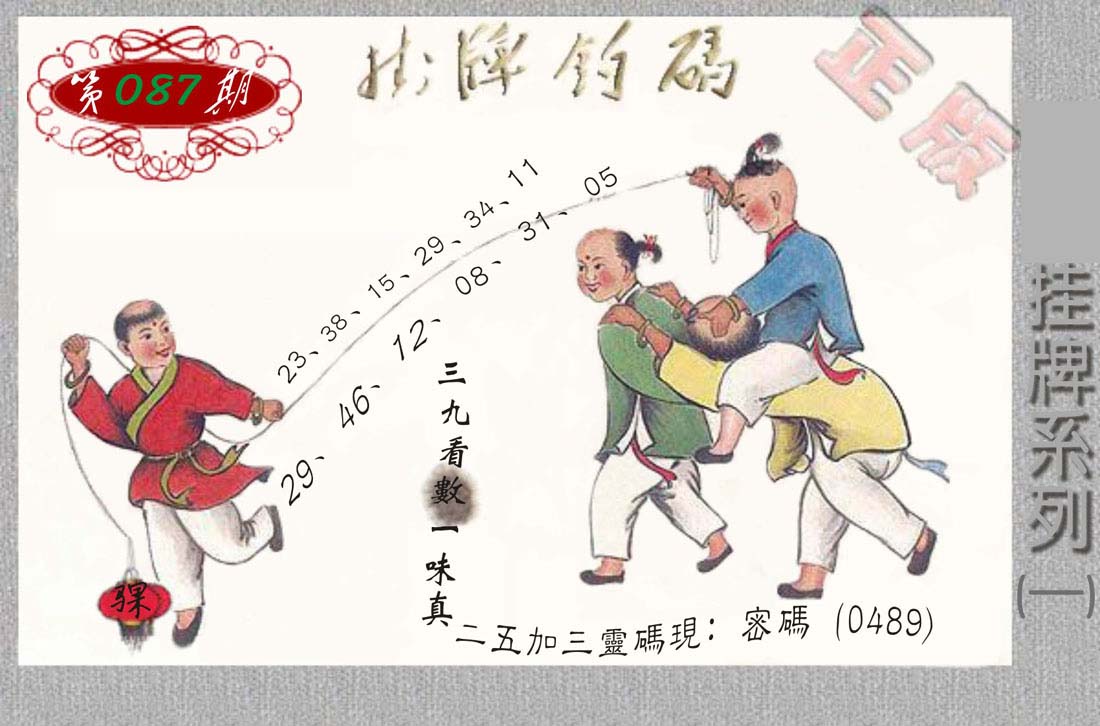 第087期
掛牌釣碼
正版
23、38、15、29、34、11
29、46、12、08、31、05
三九看數一味真
二五加三靈碼現：密碼(0489)
騍
挂牌系列(一)